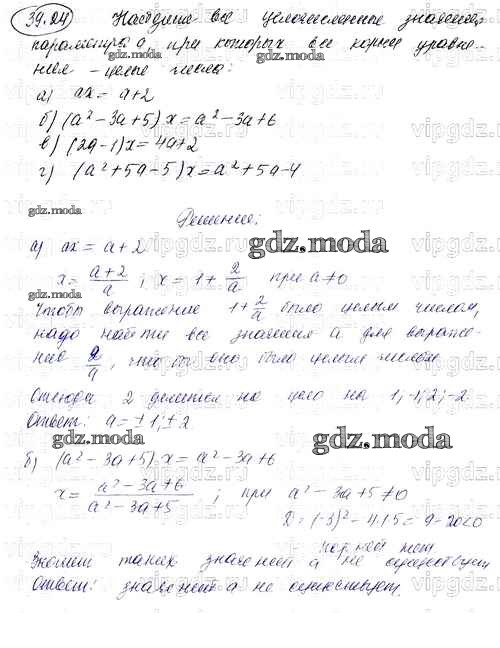 39.24 Найдите все целочисленные значения
параметра а, при которых все корни уравне-
ния – целые числа:
а) ax = a+2
б) (a² – 3a + 5) x = a² – 3a + 6
в) (2a – 1) x = 4a + 2
г) (a² + 5a – 5) x = a² + 5a – 4
Решение:
а) ax = a + 2
x = a+2/a ; x = 1 + 2/a при a ≠ 0
Чтобы выражение 1 + 2/a было целым числом,
надо найти все значения а для выраже-
ние 2/a, чтобы оно было целым числом.
Отсюда 2 делится на цело на 1; -1; 2; -2
Ответ: a = ±1; ±2
б) (a² – 3a + 5) x = a² – 3a + 6
x = a² – 3a + 6/a² – 3a + 5 ; при a² – 3a + 5 ≠ 0
= (-3)² – 4·1·5 = 9 – 20 < 0
корней нет
таких значений а не существует
Ответ: значений а не существует.
gdz.moda
vipgdz.ru